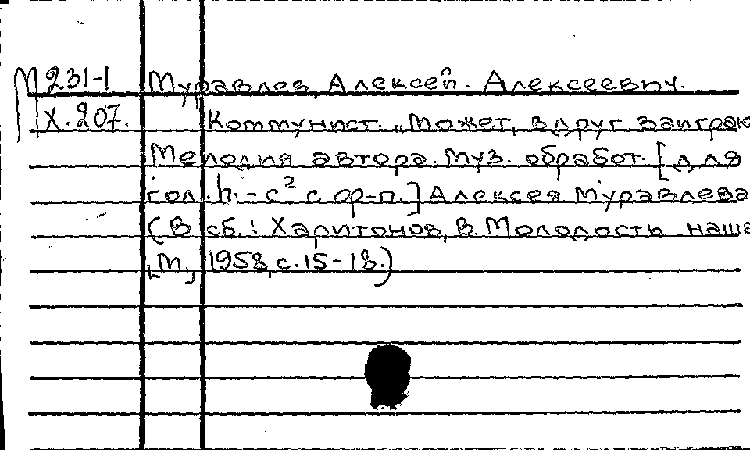 М 231-1 Муравлев, Алексей. Алексеевич.
X.207. Коммунист. „Может, вдруг заиграю
Мелодия автора. Муз. обработ. [для
гол. h.-c² с ор-п.] Алексея Муравлева
(В сб.: Харитонов, В. Молодость наша
М., 1958, с. 15-18.)